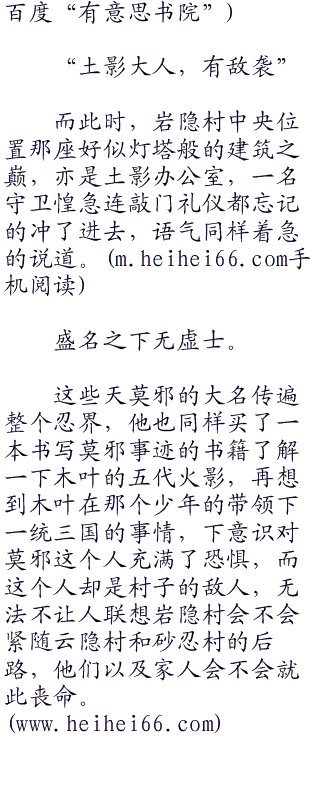 百度“有意思书院”)
“土影大人，有敌袭”
而此时，岩隐村中央位
置那座好似灯塔般的建筑之
巅，亦是土影办公室，一名
守卫惶急连敲门礼仪都忘记
的冲了进去，语气同样着急
的说道。(m.heihei66.com手
机阅读)
盛名之下无虚士。
这些天莫邪的大名传遍
整个忍界，他也同样买了一
本书写莫邪事迹的书籍了解
一下木叶的五代火影，再想
到木叶在那个少年的带领下
一统三国的事情，下意识对
莫邪这个人充满了恐惧，而
这个人却是村子的敌人，无
法不让人联想岩隐村会不会
紧随云隐村和砂忍村的后
路，他们以及家人会不会就
此丧命。
(www.heihei66.com)